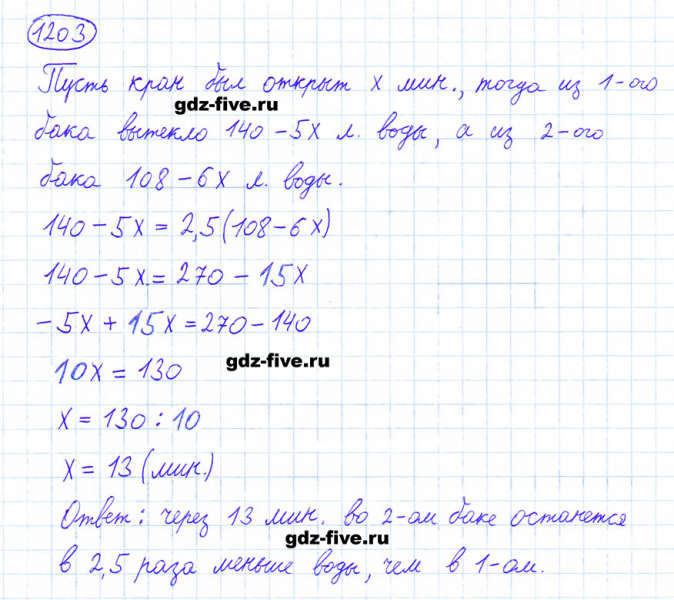 1203
Пусть кран был открыт x мин., тогда из 1-ого
gdz-five.ru
бака вытекло 140 - 5x л. воды, а из 2-ого
бака 108 - 6x л. воды.
140 - 5x = 2,5(108 - 6x)
140 - 5x = 270 - 15x
- 5x + 15x = 270 - 140
gdz-five.ru
10x = 130
x = 130 : 10
x = 13 (мин.)
Ответ: через 13 мин. во 2-ом баке останется
gdz-five.ru
в 2,5 раза меньше воды, чем в 1-ом.